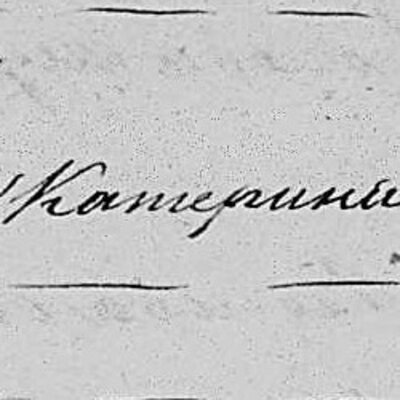 Катерина